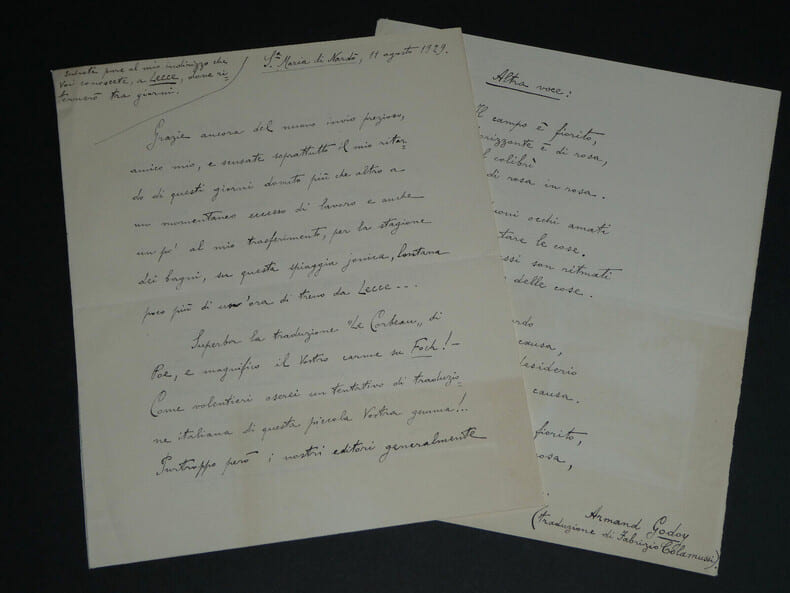 Scrivete pure al mio indirizzo che
Voi conoscete, a Lecce, dove ri-
tornerò tra giorni.
Sta Maria di Nardò, 11 agosto 1929.
Grazie ancora del nuovo invio prezioso,
amico mio, e scusate soprattutto il mio ritar-
do di questi giorni dovuto più che altro a
un momentaneo eccesso di lavoro e anche
un po' al mio trasferimento, per la stagione
dei bagni, su questa spiaggia jonica, lontana
poco più di un'ora di treno da Lecce...
Superba la traduzione "Le Corbeau" di
Poe, e magnifico il Vostro carme su Foch! -
Come volentieri oserei un tentativo di traduzio-
ne italiana di questa piccola Vostra gemma!..
Purtroppo però i nostri editori generalmente
Altra voce:
Il campo è fiorito,
orizzonte è di rosa,
il colibrì
di rosa in rosa.
occhi amati
tare le cose.
ssi son ritmati
delle cose.
ardo
causa,
desiderio
causa.
fiorito,
rosa,
Armand Godoy
(traduzione di Fabrizio Colamussi).